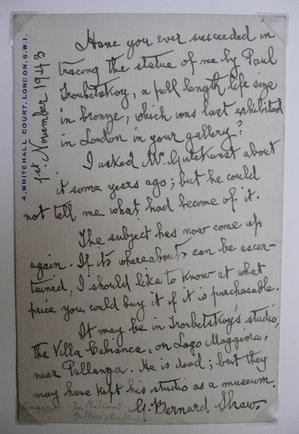 4, WHITEHALL COURT, LONDON, S.W.1.
1st November 1943
Have you ever succeeded in
tracing the statue of me by Paul
Troubetskoy, a full length life size
in bronze, which was last exhibited
in London in your gallery?
I asked Mr Gutekunst about
it some years ago; but he could
not tell me what had become of it.
The subject has now come up
again. If its whereabouts can be ascer-
tained, I should like to know at what
price you could buy it if it is purchasable.
It may be in Troubetskoy's studio,
the Villa Cabianca, on Lago Maggiore,
near Pallanza. He is dead; but they
may have kept his studio as a museum.
G. Bernard Shaw.
in National
Gallery